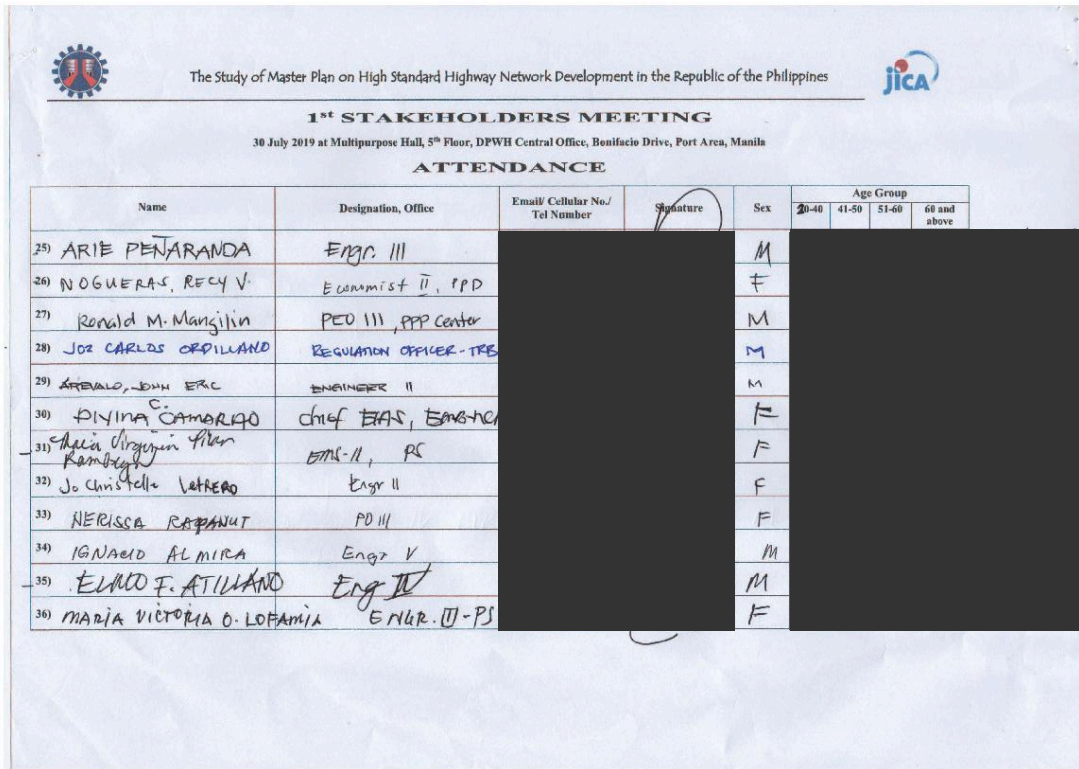 The Study of Master Plan on High Standard Highway Network Development in the Republic of the Philippines
JICA
1st STAKEHOLDERS MEETING
30 July 2019 at Multipurpose Hall, 5th Floor, DPWH Central Office, Bonifacio Drive, Port Area, Manila
ATTENDANCE
Name Designation, Office Email/ Cellular No./ Tel Number Signature Sex Age Group
20-40 41-50 51-60 60 and above
25) ARIE PEÑARANDA Engr. III M
26) NOGUERAS, RECY V. Economist II, PPD F
27) Ronald M. Mangilin PEO III, PPP Center M
28) JOZ CARLOS ORDILLANO REGULATION OFFICER - TRB M
29) AREVALO, JOHN ERIC ENGINEER II M
30) DIVINA C. CAMARAO Chief EIAS, F
31) Maria Virginia Pilar EMS-II, PS F
32) Jo Christelle LETRERO Engr II F
33) NERISSA RAPANUT PO III F
34) IGNACIO ALMIRA Engr V M
35) F. ATILLANO Eng IV M
36) MARIA VICTORIA O. LOFAMIA ENGR. III - PS F